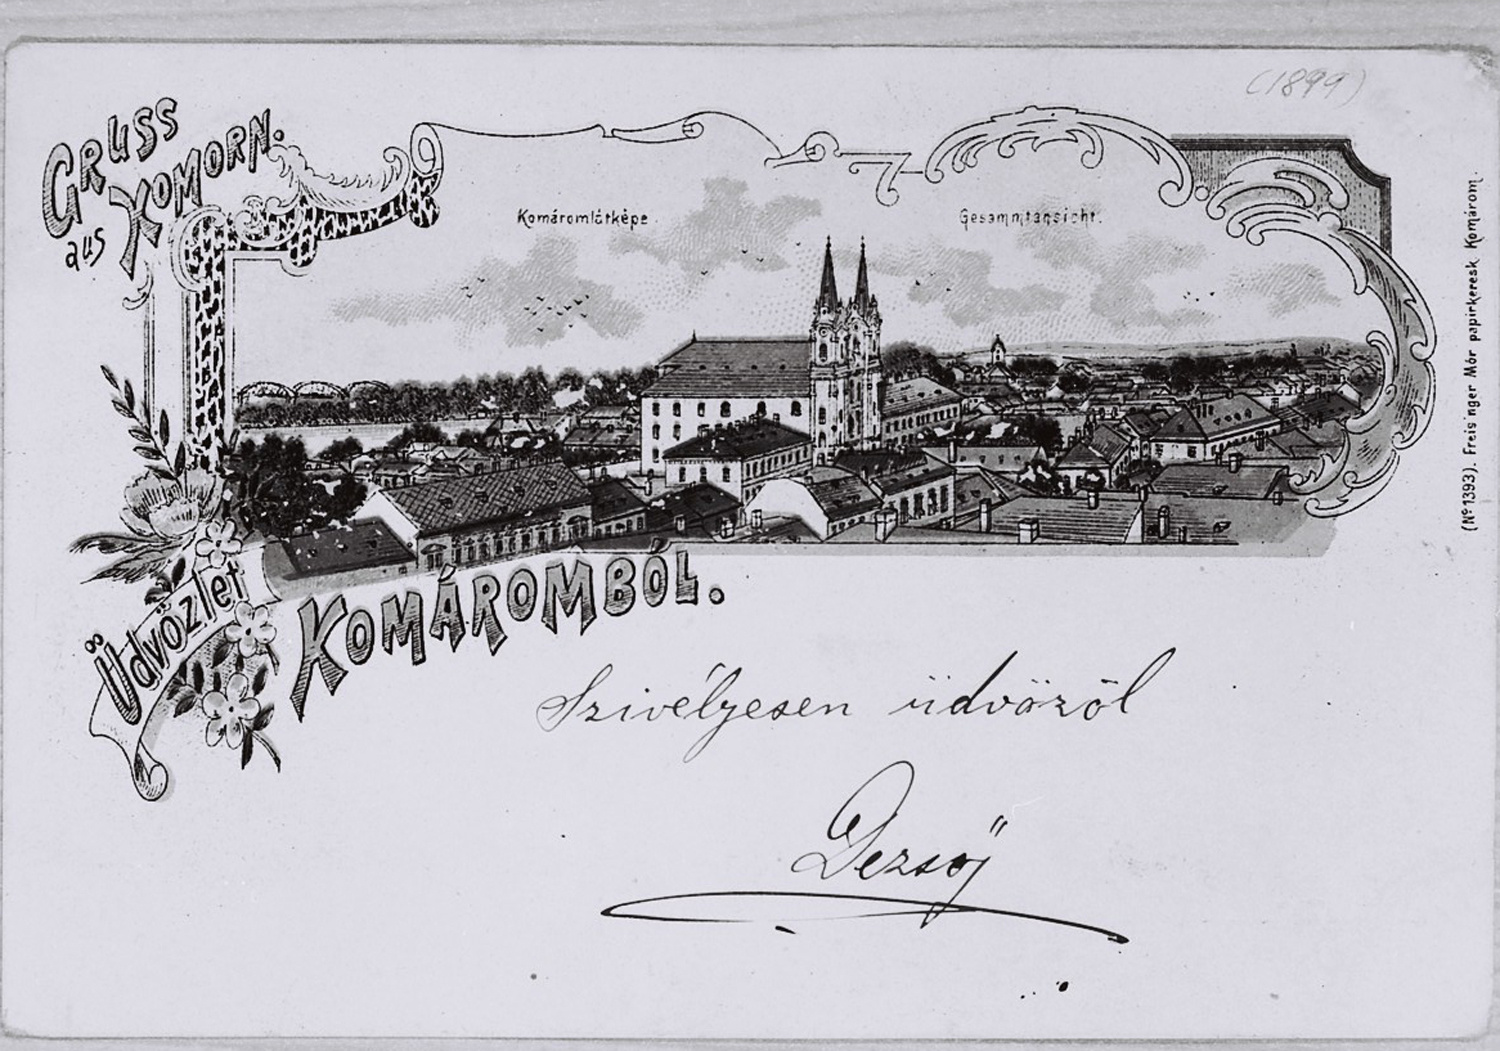 (1899)
GRUSS
aus KOMORN.
Komáromlátképe.
Gesammtansicht.
(No 1393). Freisinger Mór papirkeresk Komárom.
Üdvözlet
KOMÁROMBÓL.
Szivélyesen üdvözöl
Dezső